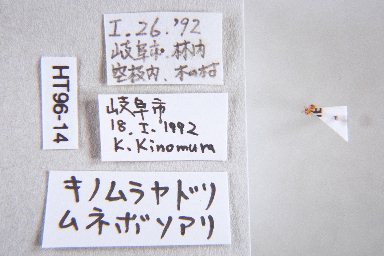 I. 26. '92
岐阜市 林内
空枝内、木の枝
HT96-14
岐阜市
18. I. 1992
K. Kinomura
キノムラヤドリ
ムネボソアリ